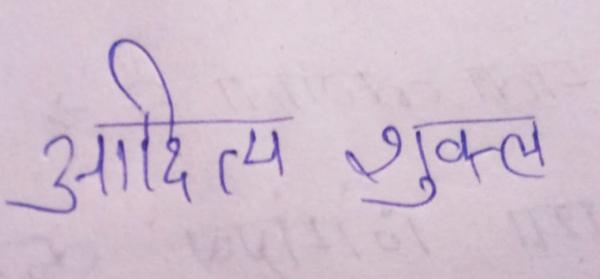 आदित्य शुक्ल